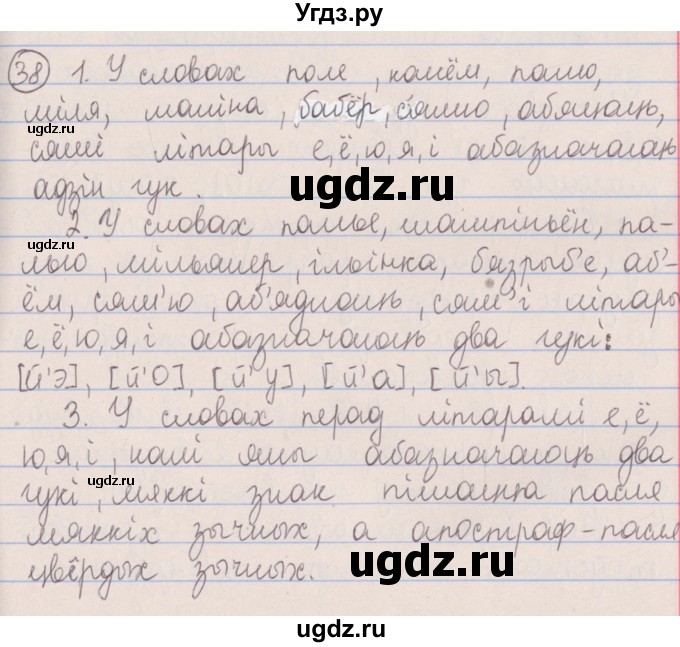 Угдз.ру
38 1. У словах поле, калём, палю,
міля, маліна, бабёр, сямю, абяцаць,
сямі літары е, ё, ю, я, і абазначаюць
адзін гук.
2. У словах памье, шампіньён, па-
лью, мільянер, ільінка, бязрыб'е, аб'-
ём, сям'ю, аб'яднаць, сям'і літары
е, ё, ю, я, і абазначаюць два гукі:
[й'э], [й'о], [й'у], [й'а], [й'ы].
3. У словах перад літарамі е, ё,
ю, я, і, калі яны абазначаюць два
гукі, мяккі знак пішацца пасля
мяккіх зычных, а апостраф - пасля
цвёрдых зычных.
ugdz.ru
ugdz.ru
ugdz.ru
ugdz.ru
ugdz.ru
ugdz.ru
ugdz.ru
ugdz.ru